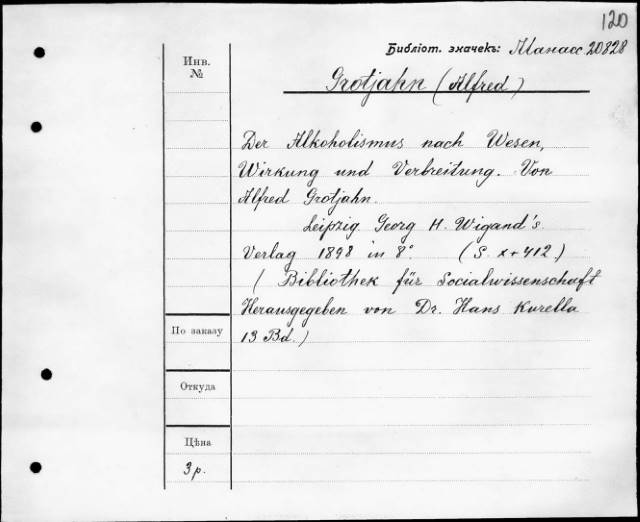 120
Библіот. значекъ: Манасс. 20828
Инв. №
Grotjahn (Alfred)
Der Alkoholismus nach Wesen,
Wirkung und Verbreitung. Von
Alfred Grotjahn.
Leipzig. Georg H. Wigand's
Verlag 1898 in 8°. (S. X+412.)
(Bibliothek für Socialwissenschaft
Herausgegeben von Dr. Hans Kurella
13 Bd.)
По заказу
Откуда
Цѣна
3 р.